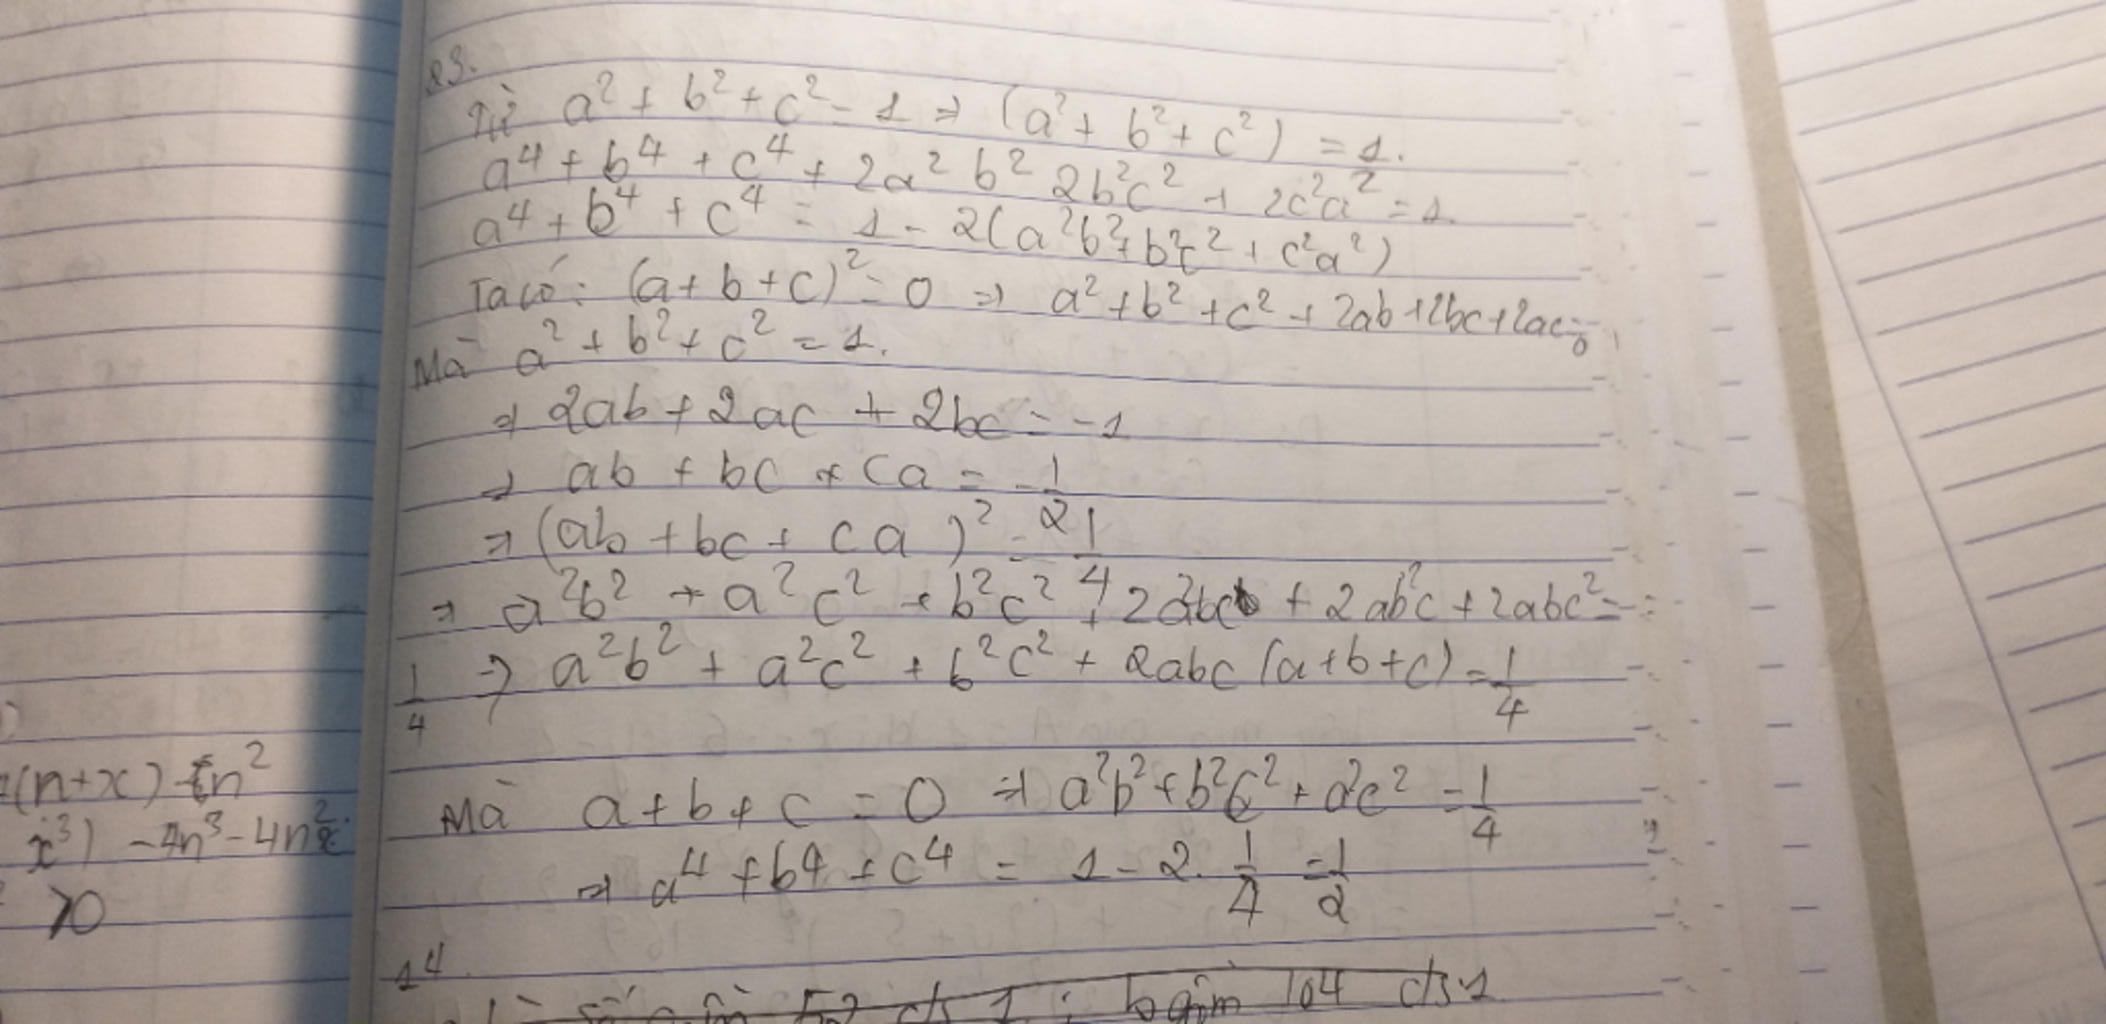 23.
Từ a² + b² + c² = 1 ⇒ (a² + b² + c²) = 1.
a⁴ + b⁴ + c⁴ + 2a²b² 2b²c² + 2c²a² = 1.
a⁴ + b⁴ + c⁴ = 1 - 2(a²b² + b²c² + c²a²)
Ta có: (a + b + c)² = 0 ⇒ a² + b² + c² + 2ab + 2bc + 2ac = 0
Mà a² + b² + c² = 1.
⇒ 2ab + 2ac + 2bc = -1
⇒ ab + bc + ca = -1/2
⇒ (ab + bc + ca)² = 1/4
⇒ a²b² + a²c² + b²c² + 2a²bc + 2ab²c + 2abc² =
1/4 ⇒ a²b² + a²c² + b²c² + 2abc (a + b + c) = 1/4
Mà a + b + c = 0 ⇒ a²b² + b²c² + a²c² = 1/4
⇒ a⁴ + b⁴ + c⁴ = 1 - 2. 1/4 = 1/2
14
số 1 : 104 c/s 1
(n+x) n²
x³) - 4n³ - 4n²
>0